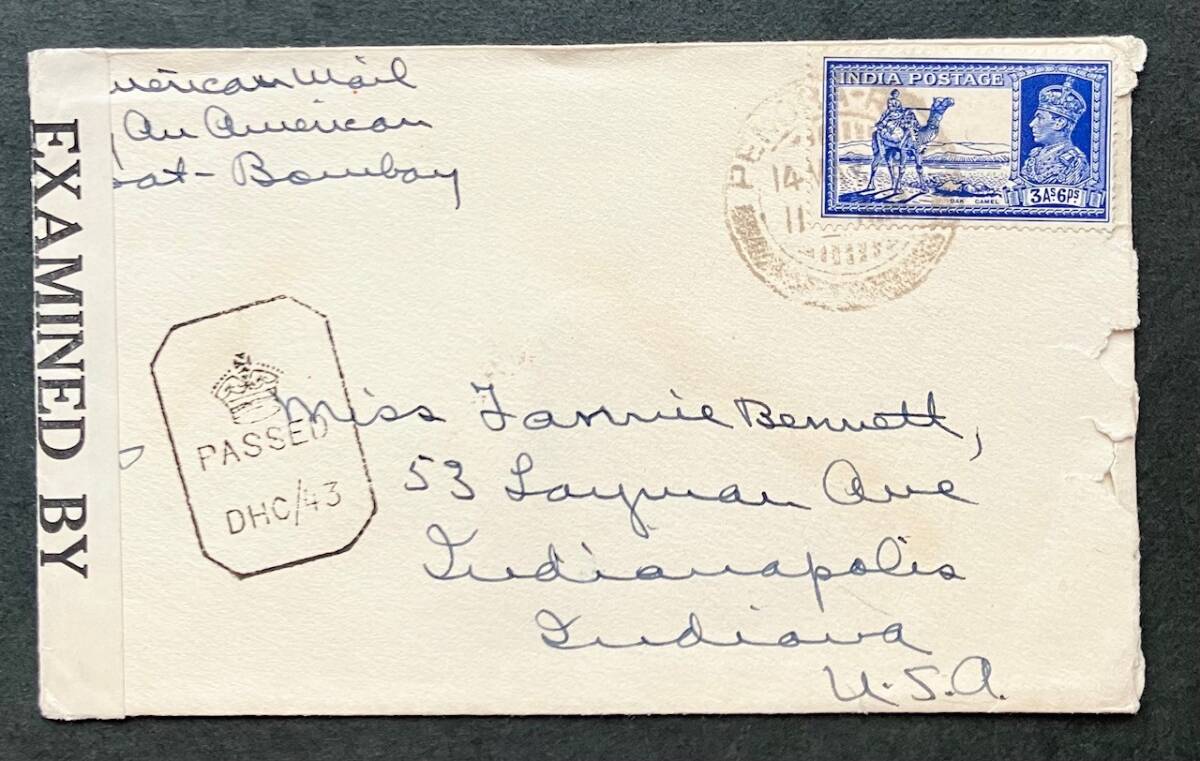 merican Mail
An American
oat - Bombay
EXAMINED BY
INDIA POSTAGE
DAK CAMEL
3As.6ps.
14
11
PASSED
DHC/43
Miss Fannie Bennett,
53 Layman Ave
Indianapolis
Indiana
U.S.A.